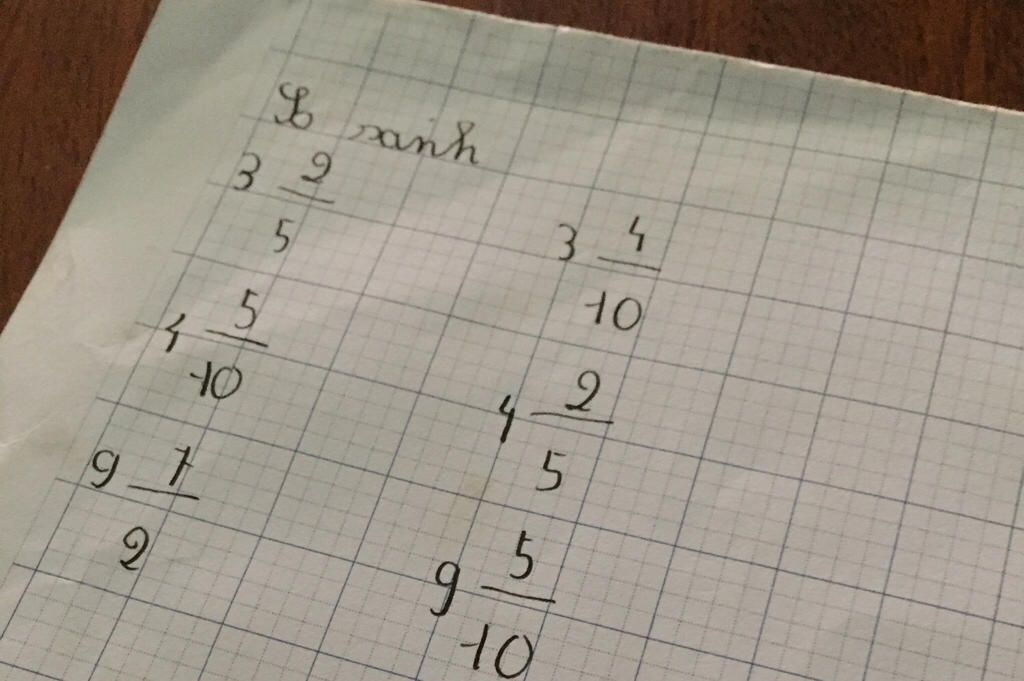 So sánh
3 2/5 3 4/10
4 5/10 4 2/5
9 7/2 9 5/10